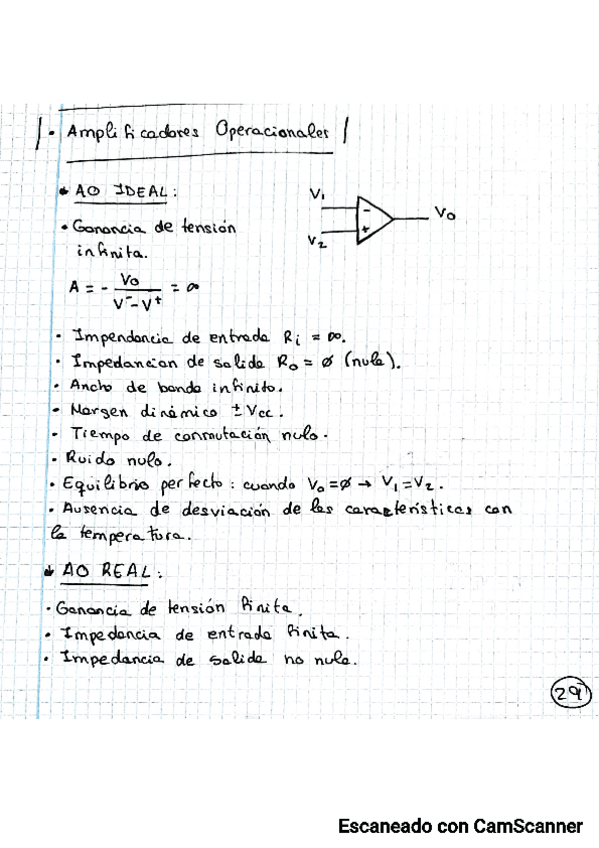 · Amplificadores Operacionales
AO IDEAL:
V1
Vo
- 
+
V2
· Ganancia de tensión
infinita.
A = - Vo / V⁻ - V⁺ = ∞
· Impendancia de entrada Ri = ∞.
· Impedancian de salida Ro = ø (nula).
· Ancho de banda infinito.
· Margen dinámico ± Vcc.
· Tiempo de conmutación nulo.
· Ruido nulo.
· Equilibrio perfecto: cuando Vo = ø → V1 = V2.
· Ausencia de desviación de las características con
la temperatura.
AO REAL:
· Ganancia de tensión finita.
· Impedancia de entrada finita.
· Impedancia de salida no nula.
29
Escaneado con CamScanner